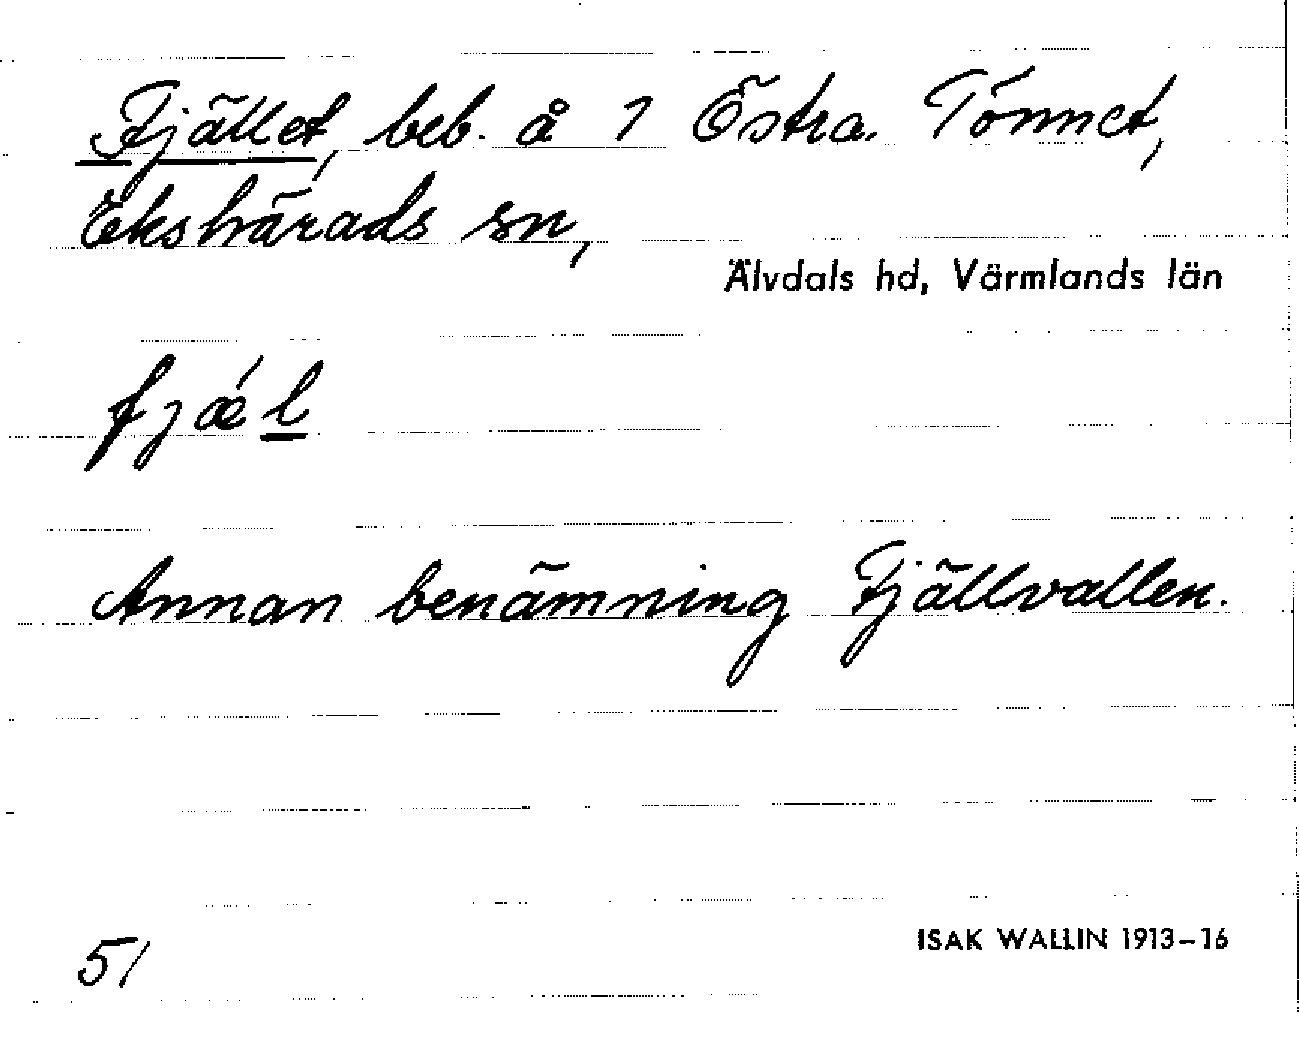 Fjället, beb. å 1 Östra Tönnet,
Ekshärads sn,
Älvdals hd, Värmlands län
fjǽl
Annan benämning Fjällvallen.
51
ISAK WALLIN 1913-16